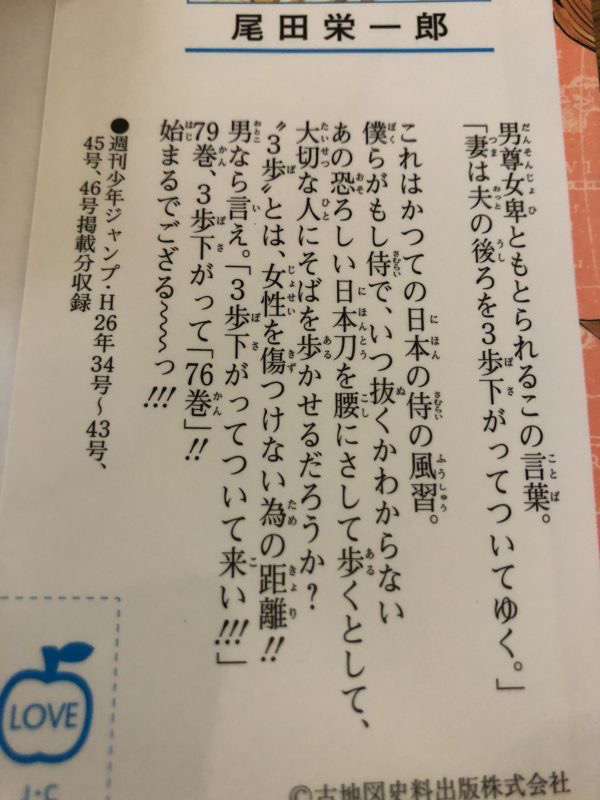 尾田栄一郎
「妻は夫の後ろを3歩下がってついてゆく。」
男尊女卑ともとられるこの言葉。
これはかつての日本の侍の風習。
僕らがもし侍で、いつ抜くかわからない
あの恐ろしい日本刀を腰にさして歩くとして、
大切な人にそばを歩かせるだろうか?
"3歩"とは、女性を傷つけない為の距離!!
男なら言え。「3歩下がってついて来い!!!」
79巻、3歩下がって「76巻」!!
始まるでござる~~~っ!!!
●週刊少年ジャンプ・H26年34号~43号、
45号、46号掲載分収録
LOVE
©古地図史料出版株式会社